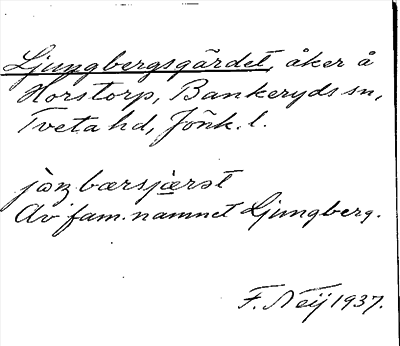 Ljungbergsgärdet, åker å
Horstorp, Bankeryds sn,
Tveta hd, Jönk. l.
jòŋbærsjærət
Av fam.namnet Ljungberg.
F. Neij 1937.